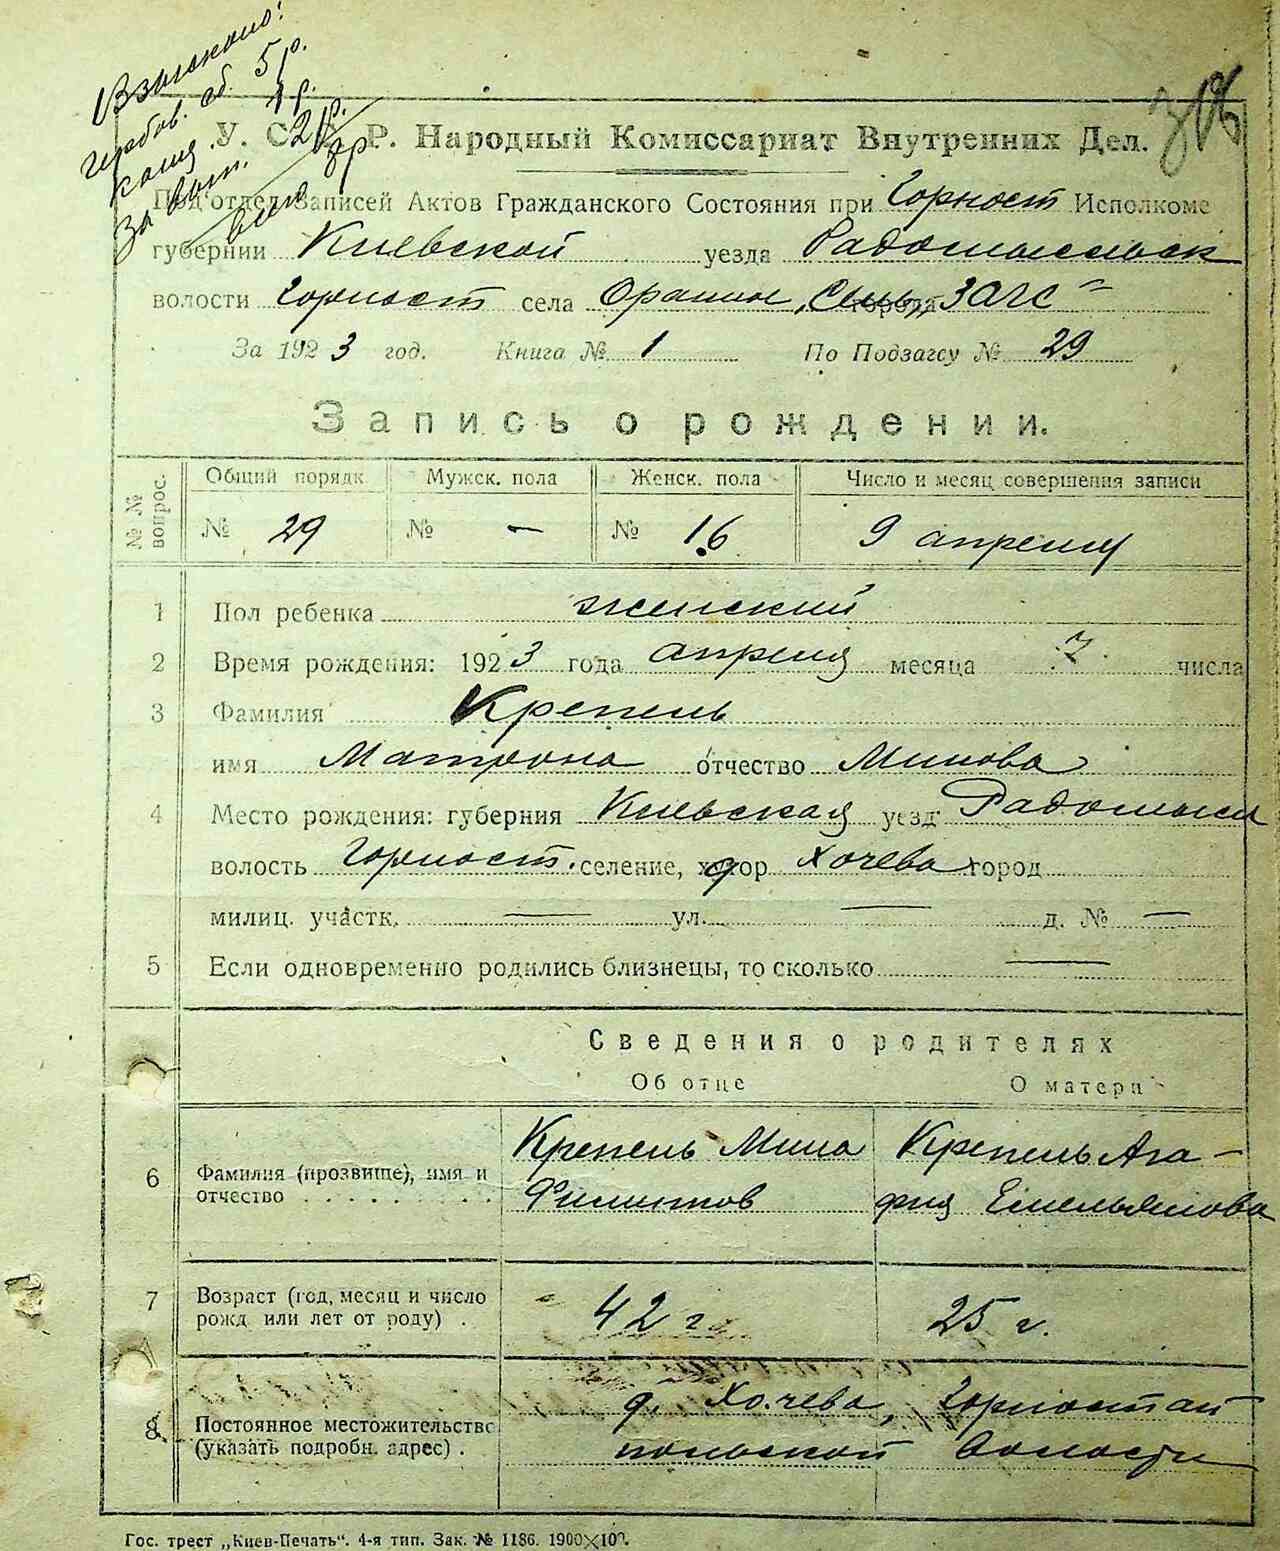 Взыскано:
гербов. сб. 5 р.
1 р.
За 2 р.
306
У. С. С. Р. Народный Комиссариат Внутренних Дел.
Под'отдел Записей Актов Гражданского Состояния при Горност Исполкоме
губернии Киевской уезда Радомысльск
волости Горност села Оранни, города ЗАГС"
За 1923 год. Книга № 1 По Подзагсу № 29
Запись о рождении.
№ № вопрос. Общий порядк Мужск. пола Женск. пола Число и месяц совершения записи
№ 29 № — № 16 9 апреля
1 Пол ребенка женский
2 Время рождения: 1923 года апреля месяца 7 числа
3 Фамилия Крепель
имя Матрона отчество Минова
4 Место рождения: губерния Киевская уезд Радомысл
волость Горност. селение, хутор Хочева город
милиц. участк. — ул. — д. № —
5 Если одновременно родились близнецы, то сколько —
Сведения о родителях
Об отце О матери
6 Фамилия (прозвище), имя и
отчество . . . . . . . . . .
Крепель Мина
Филиппов
Крепель Ага-
фия Емельянова
7 Возраст (год, месяц и число
рожд. или лет от роду) .
42 г 25 г.
8 Постоянное местожительство
(указать подробн. адрес) .
д. Хочева, Горностай
польской волости
Гос. трест „Киев-Печать“. 4-я тип. Зак. № 1186. 1900×100.